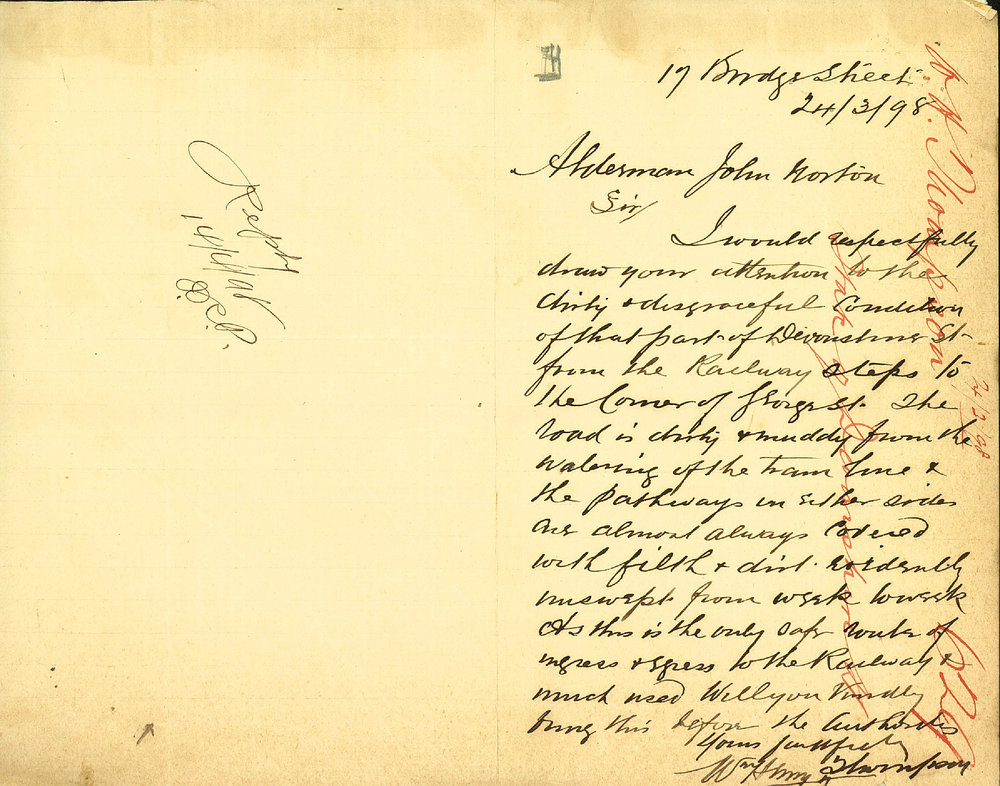 17 Bridge Street
24/3/98
Alderman John Norton
Sir/
I would respectfully
draw your attention to the
dirty & disgraceful Condition
of that part of Devonshire St
from the Railway Steps to
the Corner of George St. The
road is dirty & muddy from the
watering of the tram line &
the pathways on Either sides
are almost always Covered
with filth & dirt. Evidently
unswept from week to week
As this is the only safe route of
ingress & Egress to the Railway &
much used Will you Kindly
bring this before the authorities
Yours faithfully
Wm Henry Thompson
W. H. Thompson
24/3/98
State of Devonshire St
Reply